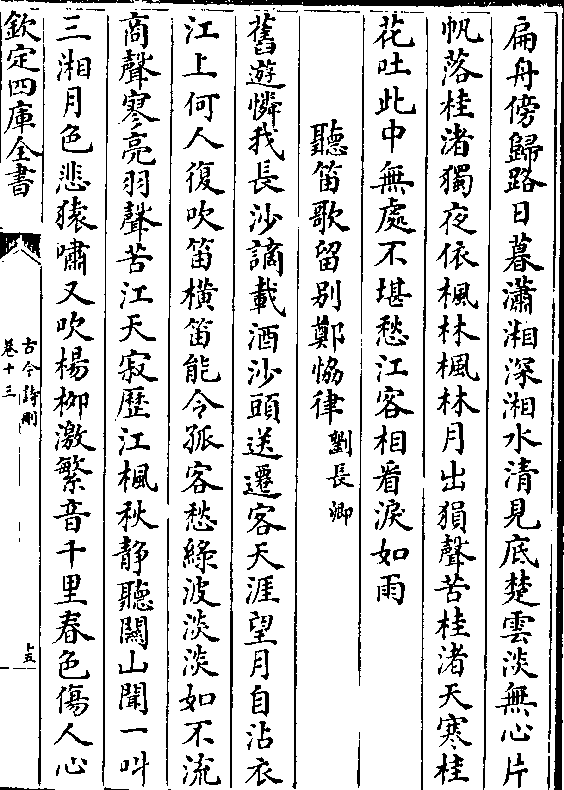 扁舟傍歸路日暮瀟湘深湘水清見底楚雲淡無心片
帆落桂渚獨夜依楓林楓林月出猿聲苦桂渚天寒桂
花吐此中無處不堪愁江客相看淚如雨
聽笛歌留别鄭恊律劉長卿
舊遊憐我長沙謫載酒沙頭送遷客天涯望月自沾衣
江上何人復吹笛横笛能令孤客愁綠波淡淡如不流
商聲寥亮羽聲苦江天寂歷江楓秋静聽關山聞一叫
三湘月色悲猿嘯又吹楊栁激繁音千里春色傷人心
欽定四庫全書
古今詩刪
卷十三
十五